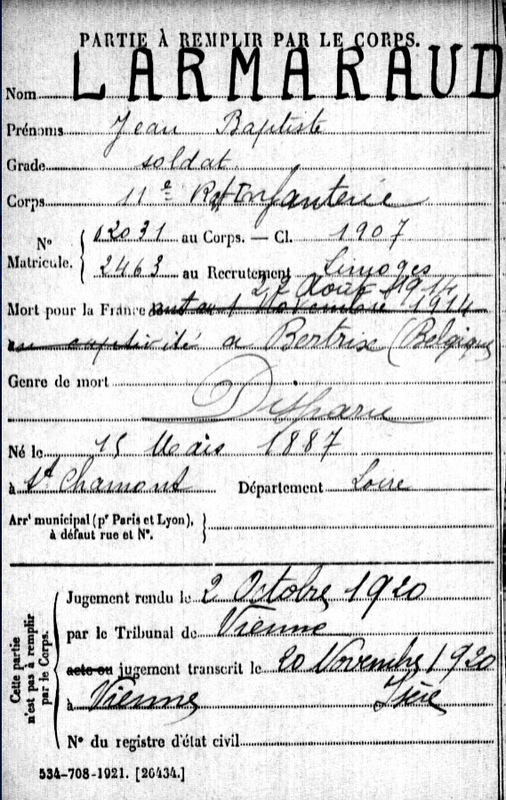 PARTIE À REMPLIR PAR LE CORPS.
Nom LARMARAUD
Prénoms Jean Baptiste
Grade soldat
Corps 11e Rgt Infanterie
Nº Matricule. { 02031 au Corps. — Cl. 1907
2463 au Recrutement Limoges
22 Août 1914
Mort pour la France 1 Novembre 1914
en captivité à Bertrix (Belgique)
Genre de mort Disparu
Né le 15 Mars 1887
à St Chamont Département Loire
Arrt municipal (pr Paris et Lyon), }
à défaut rue et Nº.
Cette partie n'est pas à remplir par le Corps.
Jugement rendu le 2 Octobre 1920
par le Tribunal de Vienne
acte ou jugement transcrit le 20 Novembre 1920
à Vienne Isère
Nº du registre d'état civil
534-708-1921. [26434.]